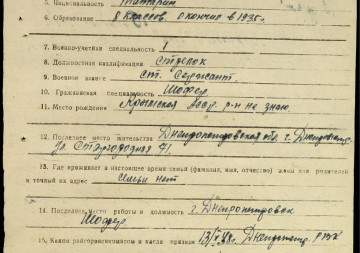 5. Национальность Татарин
6. Образование 8 классов. Окончил в 1935г.
7. Военно-учетная специальность 1
8. Должностная квалификация Стрелок
9. Военное звание ст. Сержант.
10. Гражданская специальность Шофер.
11. Место рождения Крымская АССР. р-н не знаю
12. Последнее место жительства Днепропетровская обл. г. Днепропетр.
ул. 41.
13. Где проживает в настоящее время семья (фамилия, имя, отчество) жены или родителей
и точный их адрес Семьи нет
14. Последнее место работы и должность г. Днепропетровск
Шофер
15. Каким райгорвоенкоматом и когда призван Днепропетр. РВК